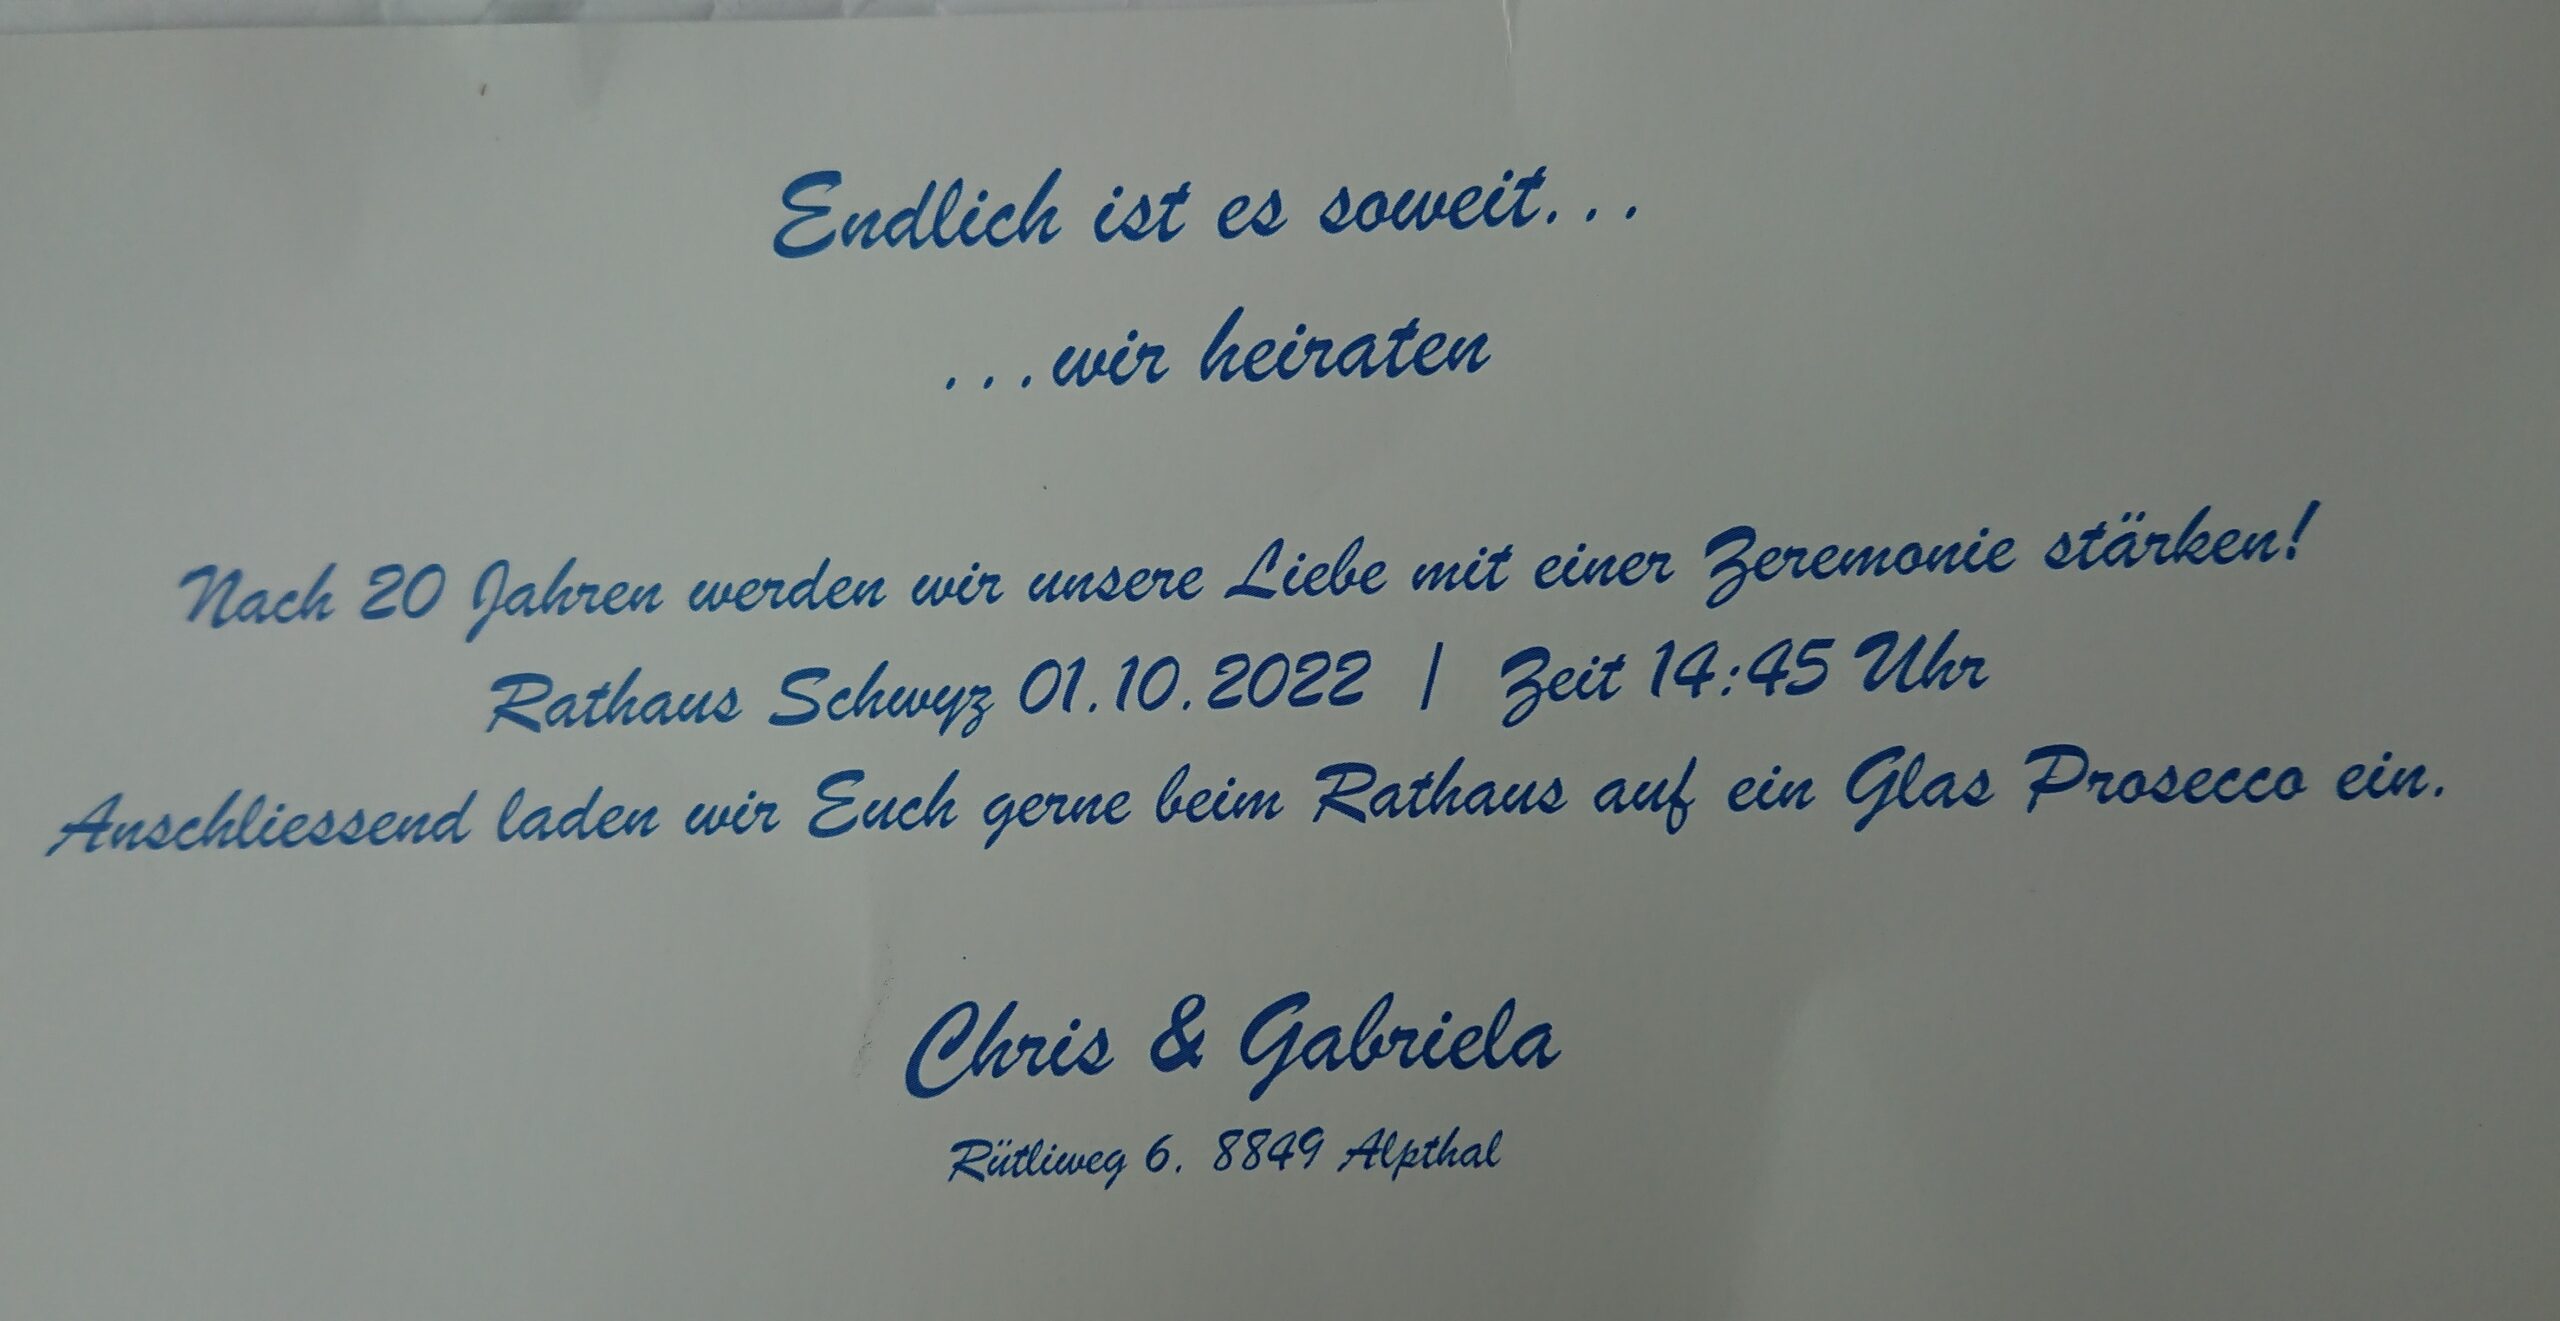 Endlich ist es soweit...
...wir heiraten
Nach 20 Jahren werden wir unsere Liebe mit einer Zeremonie stärken!
Rathaus Schwyz 01.10.2022 | Zeit 14:45 Uhr
Anschliessend laden wir Euch gerne beim Rathaus auf ein Glas Prosecco ein.
Chris & Gabriela
Rütliweg 6. 8849 Alpthal